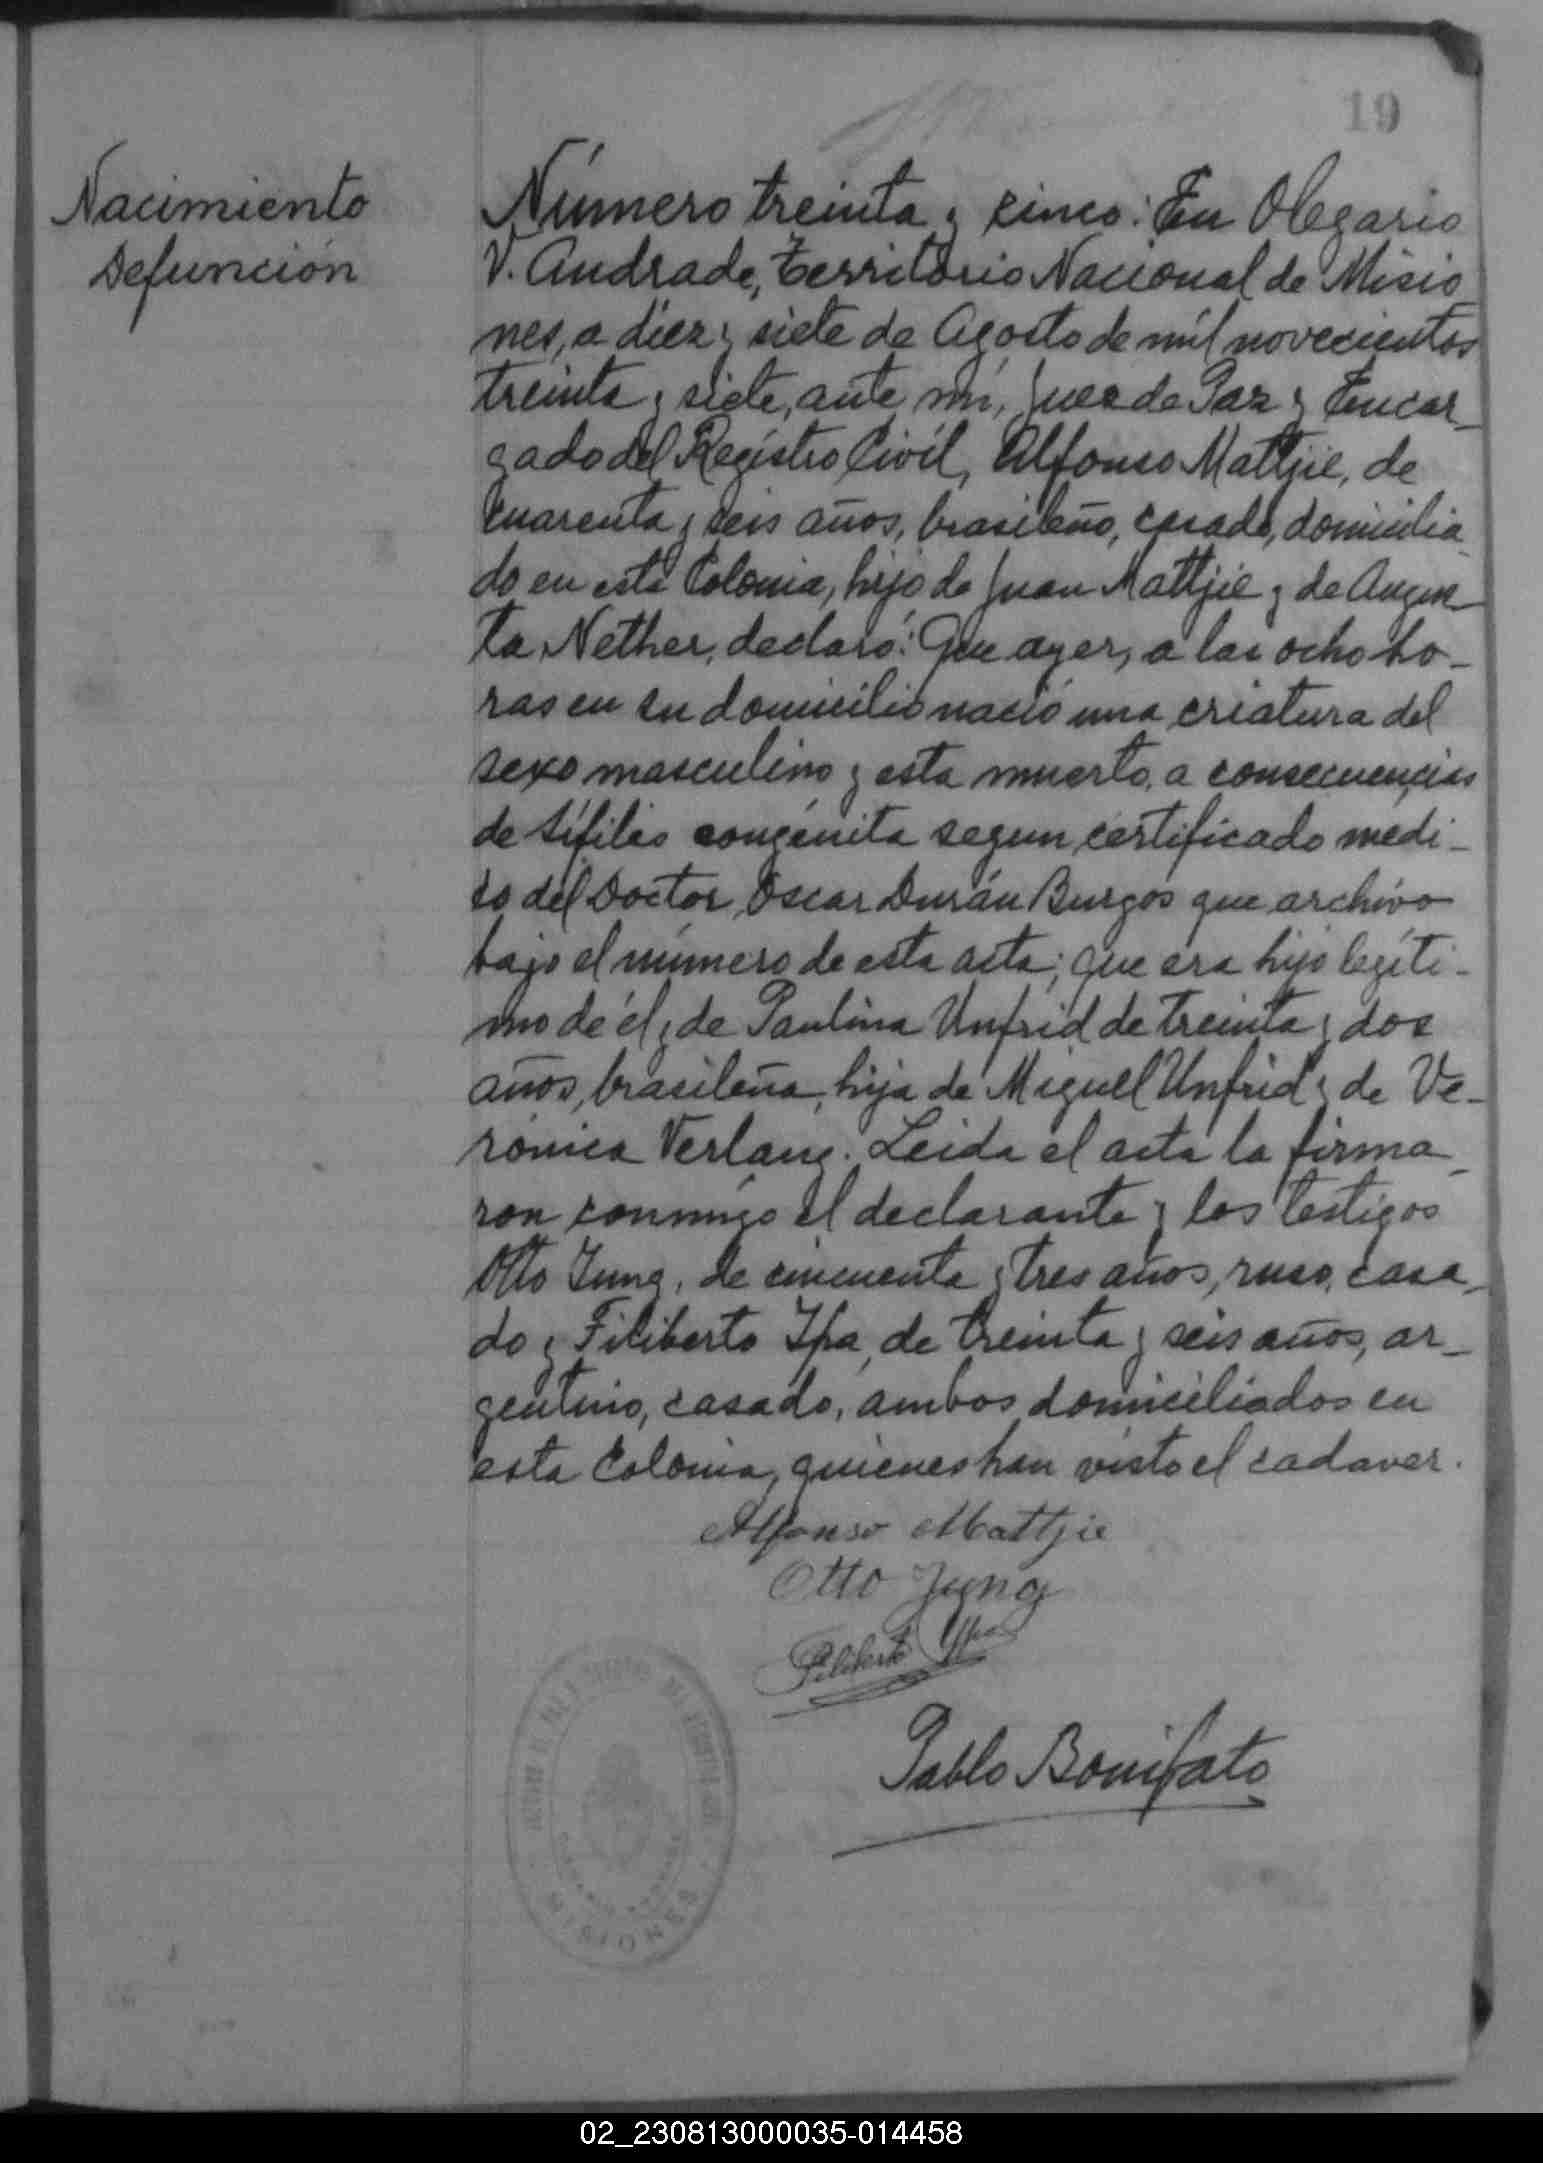 19
Nacimiento
Defunción
Número treinta y cinco: En Olegario
V. Andrade, Territorio Nacional de Misio_
nes, a diez y siete de Agosto de mil novecientos
treinta y siete, ante mí, Juez de Paz y Encar_
gado del Registro Civil, Alfonso Mattjie, de
cuarenta y seis años, brasileño, casado, domicilia_
do en esta Colonia, hijo de Juan Mattjie y de Augus_
ta Nether, declaró: Que ayer, a las ocho ho_
ras en su domicilio nació una criatura del
sexo masculino y esta muerto, a consecuencias
de sífilis congénita segun certificado medi_
co del Doctor, Oscar Durán Burgos que archivo
bajo el número de esta acta; que era hijo legíti_
mo de él y de Paulina Unfrid de treinta y dos
años, brasileña, hija de Miguel Unfrid y de Ve_
rónica Verlang. Leida el acta la firma_
ron conmigo el declarante y los testigos
Otto Jung, de cincuenta y tres años, ruso, casa_
do y Filiberto Ypa, de treinta y seis años, ar_
gentino, casado, ambos domiciliados en
esta Colonia, quienes han visto el cadaver.
Alfonso Mattjie
Otto Jung
Filiberto Ypa
Pablo Bonifato
MISIONES
02_230813000035-014458